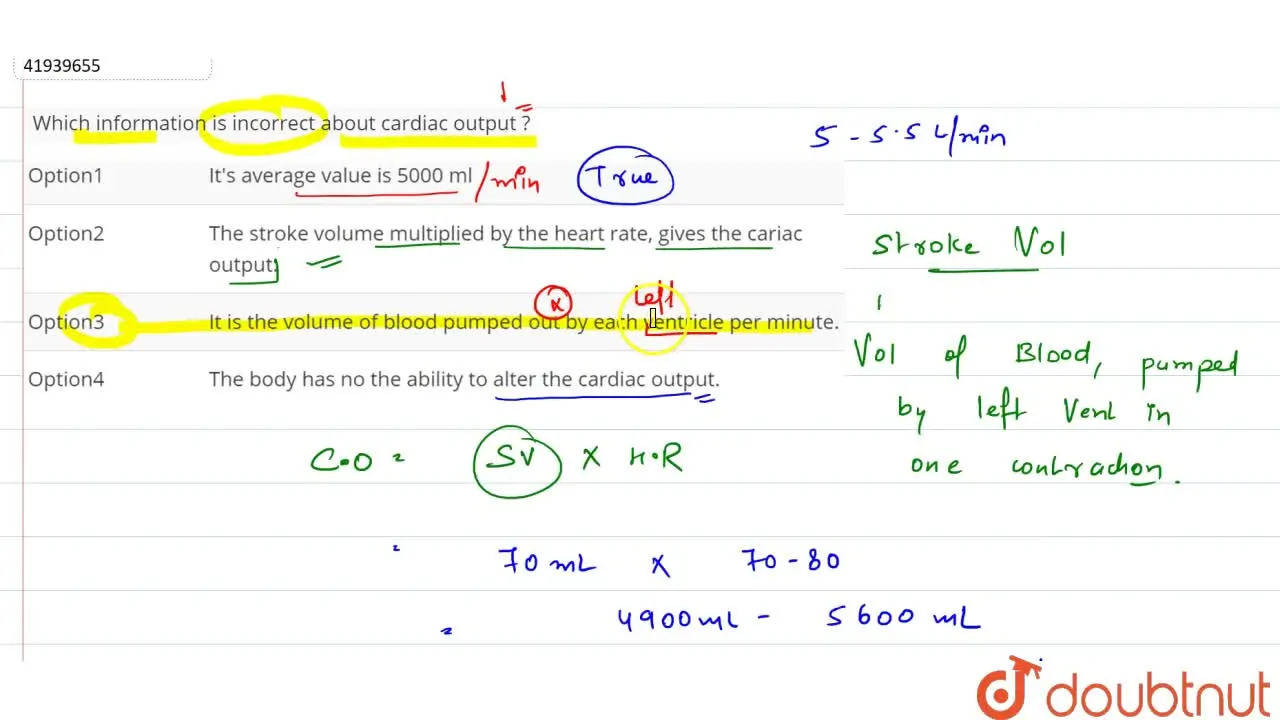 41939655
Which information is incorrect about cardiac output ?
5 - 5.5 L/min
Option1 It's average value is 5000 ml /min True
Option2 The stroke volume multiplied by the heart rate, gives the cariac
output.
Stroke Vol
x left
Option3 It is the volume of blood pumped out by each ventricle per minute.
Vol of Blood, pumped
Option4 The body has no the ability to alter the cardiac output.
by left Vent in
C.O = SV X H.R
one contraction.
= 70 mL x 70-80
= 4900 mL - 5600 mL
doubtnut